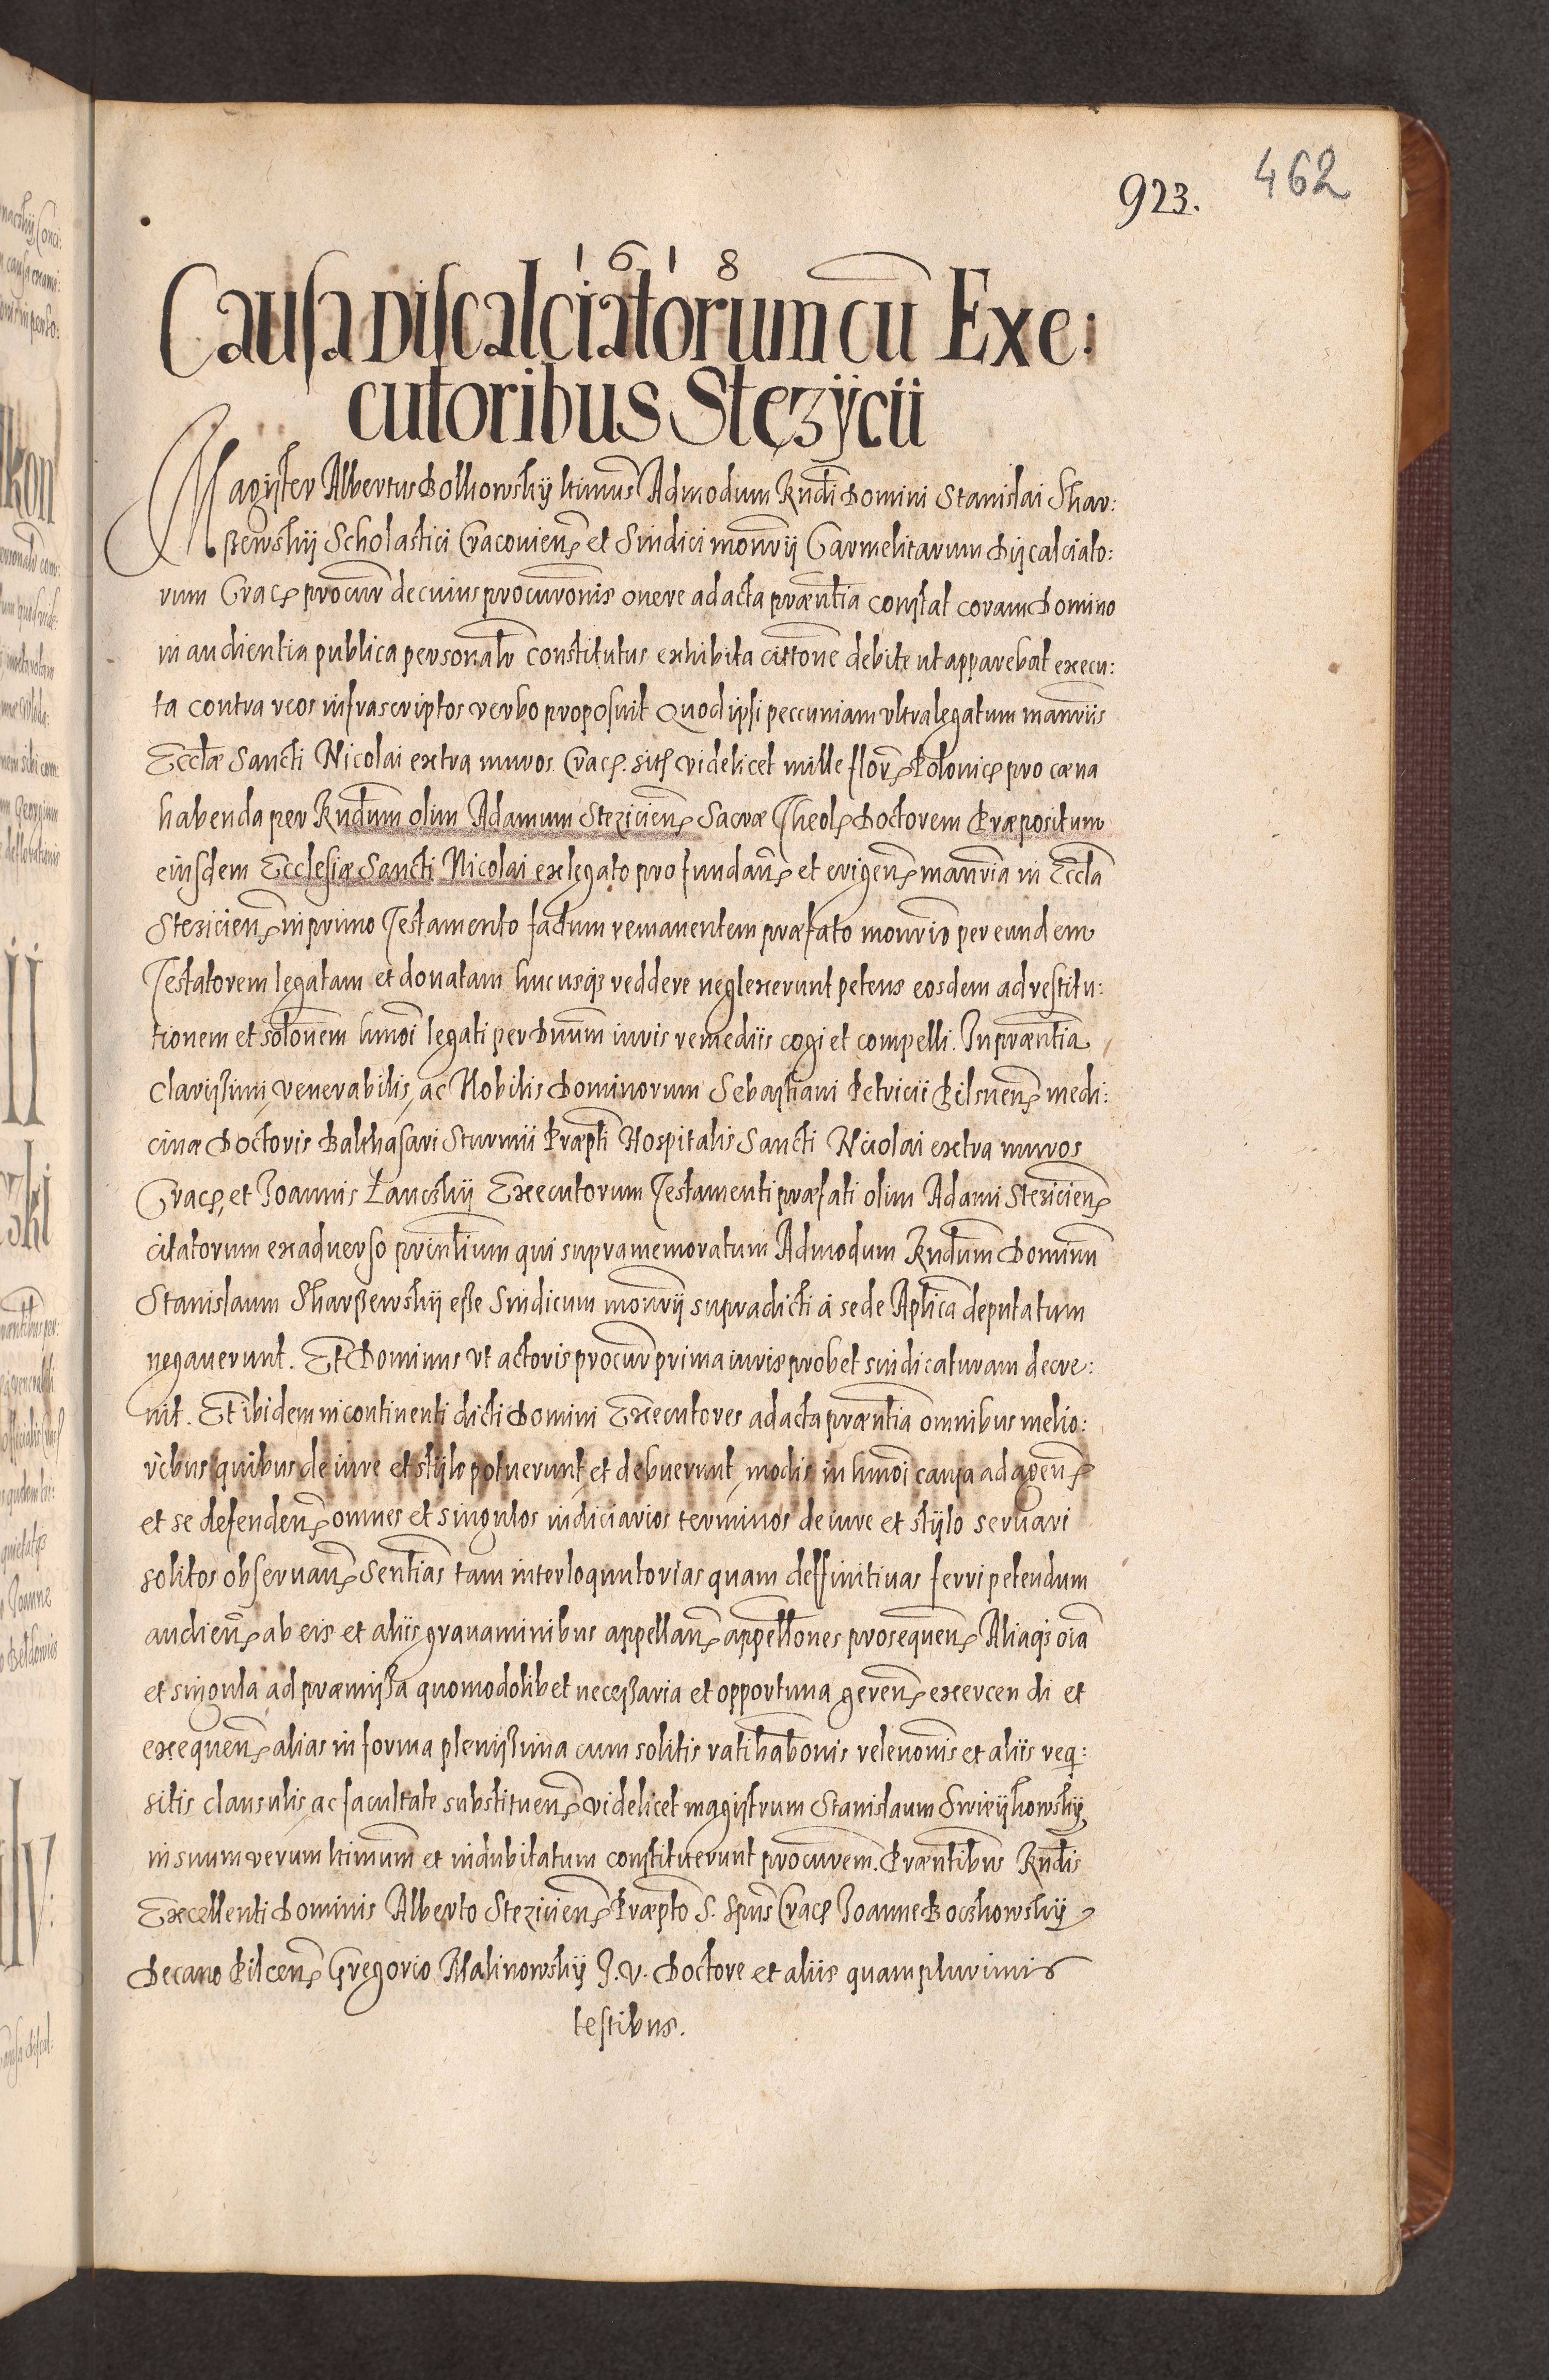 462
923.
1618
Causa Discalciatorum cū Exe:
cutoribus Stęzÿcii
Magister Albertus Dolkowskij ltimus Admodum Rndi Domini Stanislai Skar:
ßewskij Scholastici Cracovien et Sindici monrij Carmelitarum Discalciato:
rum Crac procur de cuius procuronis onere ad acta præntia constat coram Domino
in audientia publica personalr constitutus exhibita cittone debite ut apparebat execu:
ta contra reos infrascriptos verbo proposuit Quod ipsi peccuniam ultra legatum manriis
Ecclæ Sancti Nicolai extra muros Crac. sit videlicet mille flor Polonic pro cæna
habenda per Rndum olim Adamum Stezicien Sacræ Theol Doctorem Præpositum
eiusdem Ecclesiæ Sancti Nicolai ex legato pro fundan et erigen manria in Eccla
Stezicien in primo Testamento factum remanentem præfato monrio per eundem
Testatorem legatam et donatam hucusqs reddere neglexerunt petens eosdem ad restitu:
tionem et solonem hmoi legati per Dnum iuris remediis cogi et compelli. In præntia
Clarissimi, venerabilis, ac Nobilis Dominorum Sebastiani Petricii Pilsnen medi:
cinæ Doctoris Balthasari Sturmii Præpti Hospitalis Sancti Nicolai extra muros
Crac, et Joannis Łanczkij Executorum Testamenti præfati olim Adami Stezicien
citatorum ex adverso printium qui supramemoratum Admodum Rndum Dominū
Stanislaum Skarßewskij esse Sindicum monrij supradicti á sede Aplica deputatum
negaverunt. Et Dominus ut actoris procur prima iuris probet sindicaturam decre:
nit. Et ibidem in continenti dicti Domini Executores ad acta præntia omnibus melio:
ribus quibus de iure et stylo potuerunt et debuerunt modis in hmoi causa ad agen
et se defenden omnes et singulos iudiciarios terminos de iure et stylo servari
solitos observan Sentias tam interloquutorias quam deffinitivas ferri petendum
audien ab eis et aliis gravaminibus appellan appellones prosequen Aliaqs oia
et singula ad præmissa quomodolibet necessaria et opportuna geren exercendi et
exequen alias in forma plenissima cum solitis ratihabonis relevonis et aliis req:
sitis clausulis ac facultate substituen videlicet magistrum Stanislaum
in suum verum ltimum et indubitatum constituerunt procurem. Præntibus Rndis
Excellenti Dominis Alberto Stezicien Præpto S. Spus Crac Joanne Boczkowskij
Decano Pilcen Gregorio Malinowskij J. V. Doctore et aliis quamplurimis
testibus.